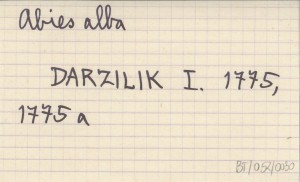 Abies alba
DARZILIK I. 1775,
1775 a
BI/052/0030